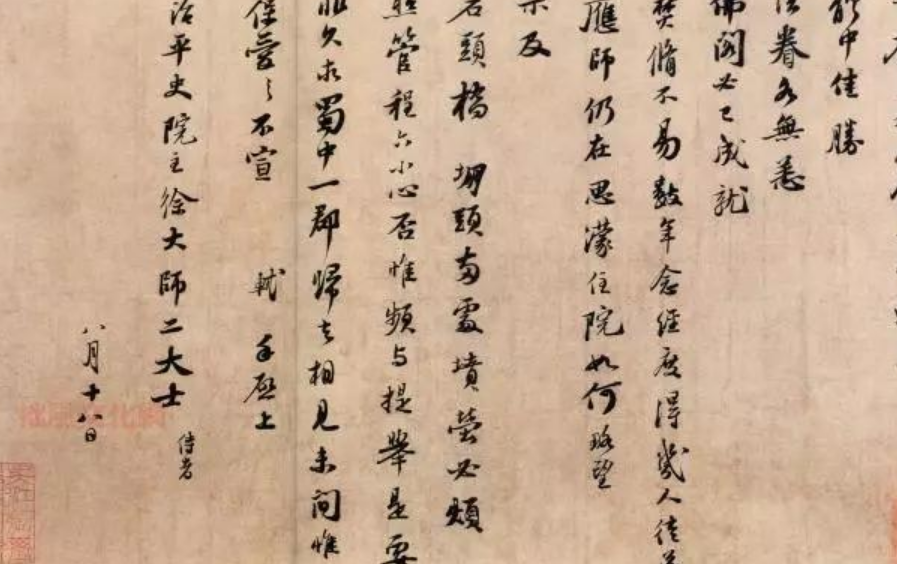 體中佳勝
法眷各無恙
佛閣必已成就
焚脩不易數年念經度得幾人徒
應師仍在思濛住院如何略望
示及
石頭橋 堋頭兩處墳塋必煩
照管程六小心否惟頻与提舉是要
非久求蜀中一郡歸去相見未間惟
保愛之不宣 軾 手啓上
治平史院主徐大師二大士 侍者
八月十八日